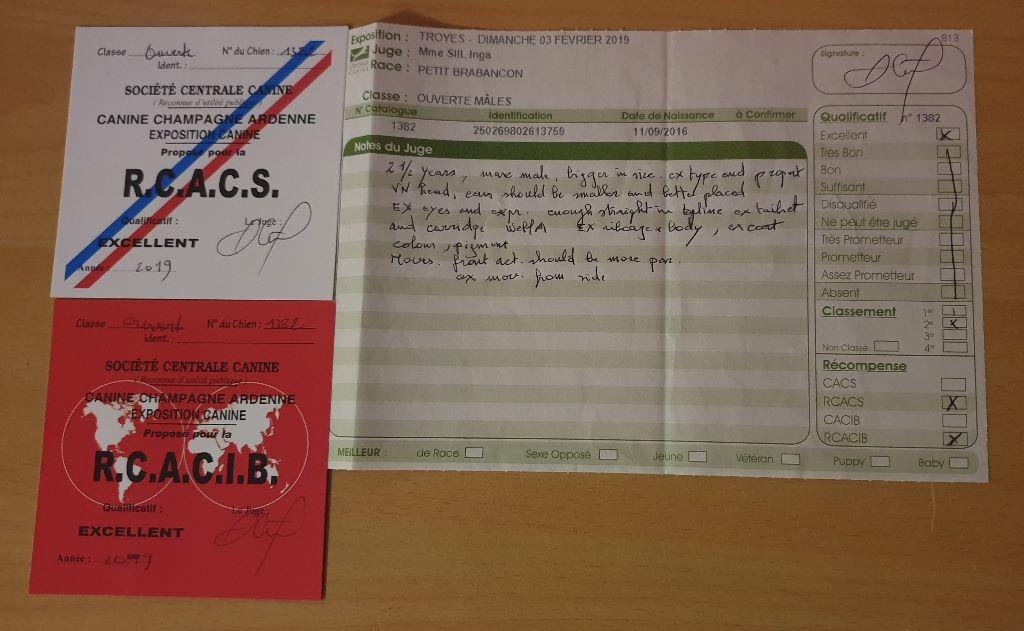 Classe Ouverte N° du Chien : 1382
Ident. :
SOCIÉTÉ CENTRALE CANINE
( Reconnue d'utilité publique )
CANINE CHAMPAGNE ARDENNE
EXPOSITION CANINE
Proposé pour la
R.C.A.C.S.
Qualificatif : Le Juge :
EXCELLENT
Année : 2019
Classe Ouvert N° du Chien : 1382
Ident. :
SOCIÉTÉ CENTRALE CANINE
( Reconnue d'utilité publique )
CANINE CHAMPAGNE ARDENNE
EXPOSITION CANINE
Proposé pour la
R.C.A.C.I.B.
Qualificatif : Le Juge :
EXCELLENT
Année : 2019
Exposition : TROYES - DIMANCHE 03 FÉVRIER 2019
Juge : Mme Sill. Inga
Race : PETIT BRABANCON
Classe : OUVERTE MÂLES
N° Catalogue Identification Date de Naissance à Confirmer
1382 250269802613759 11/09/2016
Notes du Juge
2 1/2 years, male, bigger in size. ex type and
VN head, ears should be smaller and better placed
EX eyes and expr. enough straight in topline ex tailset
and carriage EX ribcage body, ex coat
colour, pigment
Moves. front act. should be more par.
ex mov. from side
813
Signature :
Qualificatif n° 1382
Excellent X
Très Bon
Bon
Suffisant
Disqualifié
Ne peut être jugé
Très Prometteur
Prometteur
Assez Prometteur
Absent
Classement 1er
2e X
3e
Non Classé 4e
Récompense
CACS
RCACS X
CACIB
RCACIB X
MEILLEUR : de Race Sexe Opposé Jeune Vétéran Puppy Baby